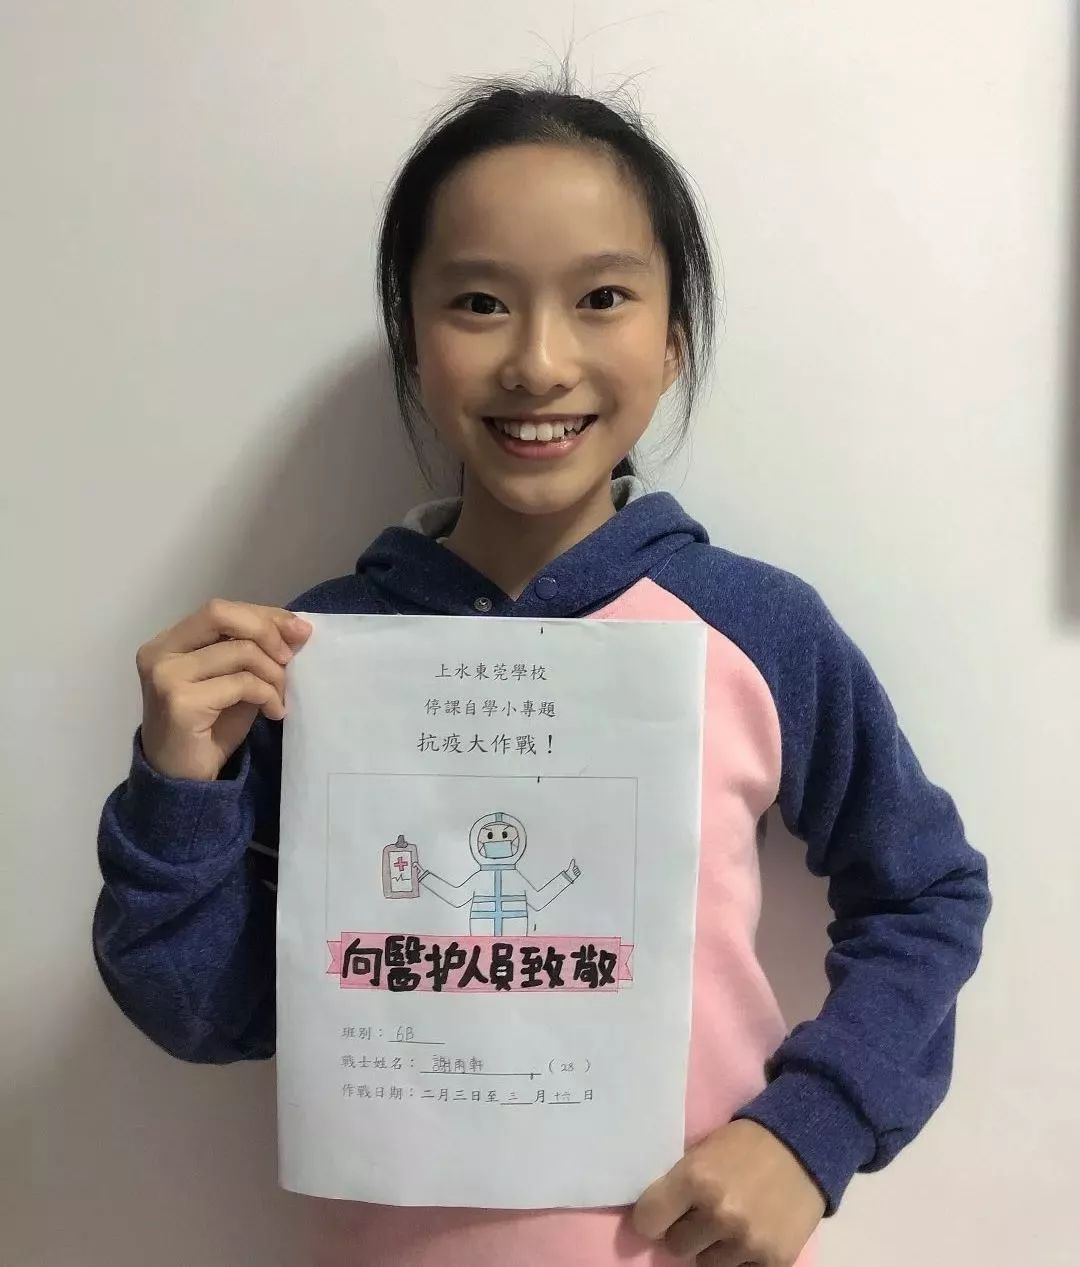 上水東莞學校
停課自學小專題
抗疫大作戰！
向醫护人員致敬
班別：6B
戰士姓名：謝雨軒（28）
作戰日期：二月三日至三月十六日